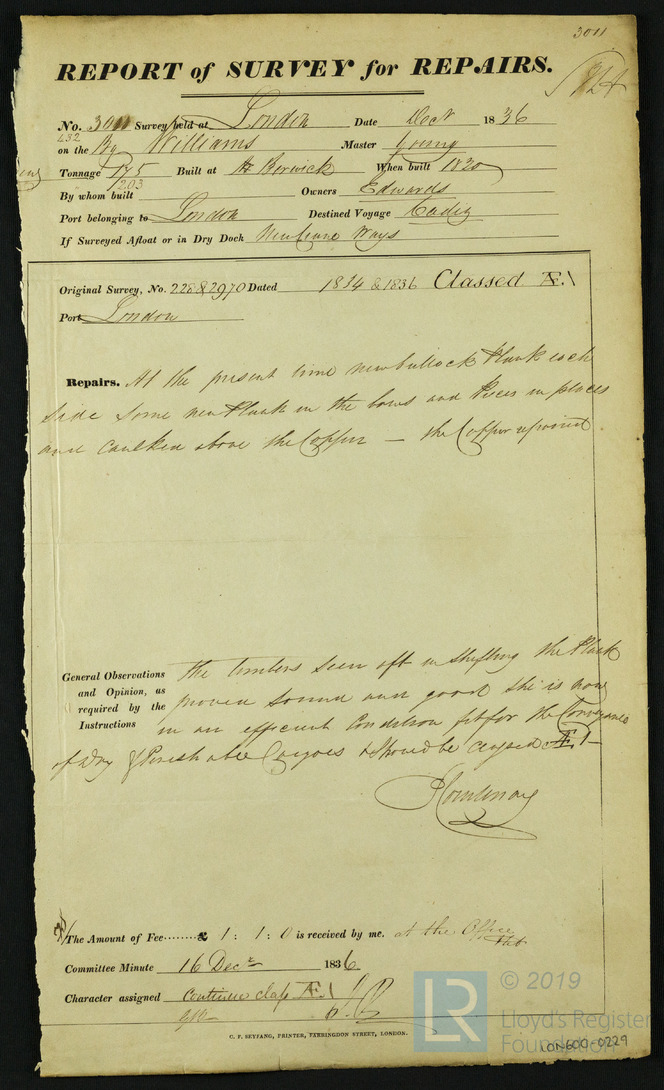 3011
REPORT of SURVEY for REPAIRS.
No. 3011 Survey held at London Date Decr 1836
432
on the Bg Williams Master Young
Tonnage 175 Built at Berwick When built 1820
203
By whom built Owners Edwards
Port belonging to London Destined Voyage Cadiz
If Surveyed Afloat or in Dry Dock New Crane Ways
Original Survey, No. 228 & 2970 Dated 1834 & 1836 Classed Æ.1
Port London
Repairs. At the present time new bullock Plank each
side some new Plank in the bows and pieces in places
and caulked above the Copper — the Copper repaired
General Observations and Opinion, as required by the Instructions
the timbers seen aft in shifting the Plank
proved sound and good she is now
in an efficient Condition fit for the Conveyance
of Dry & Perishable Cargoes & Should be classed Æ 1 —
The Amount of Fee £ 1 : 1 : 0 is received by me. at the Office
Committee Minute 16 Decr 1836
Character assigned Continue class Æ.1
C. F. SEYFANG, PRINTER, FARRINGDON STREET, LONDON.
LR
© 2019
Lloyd's Register
Foundation
LON600-0229